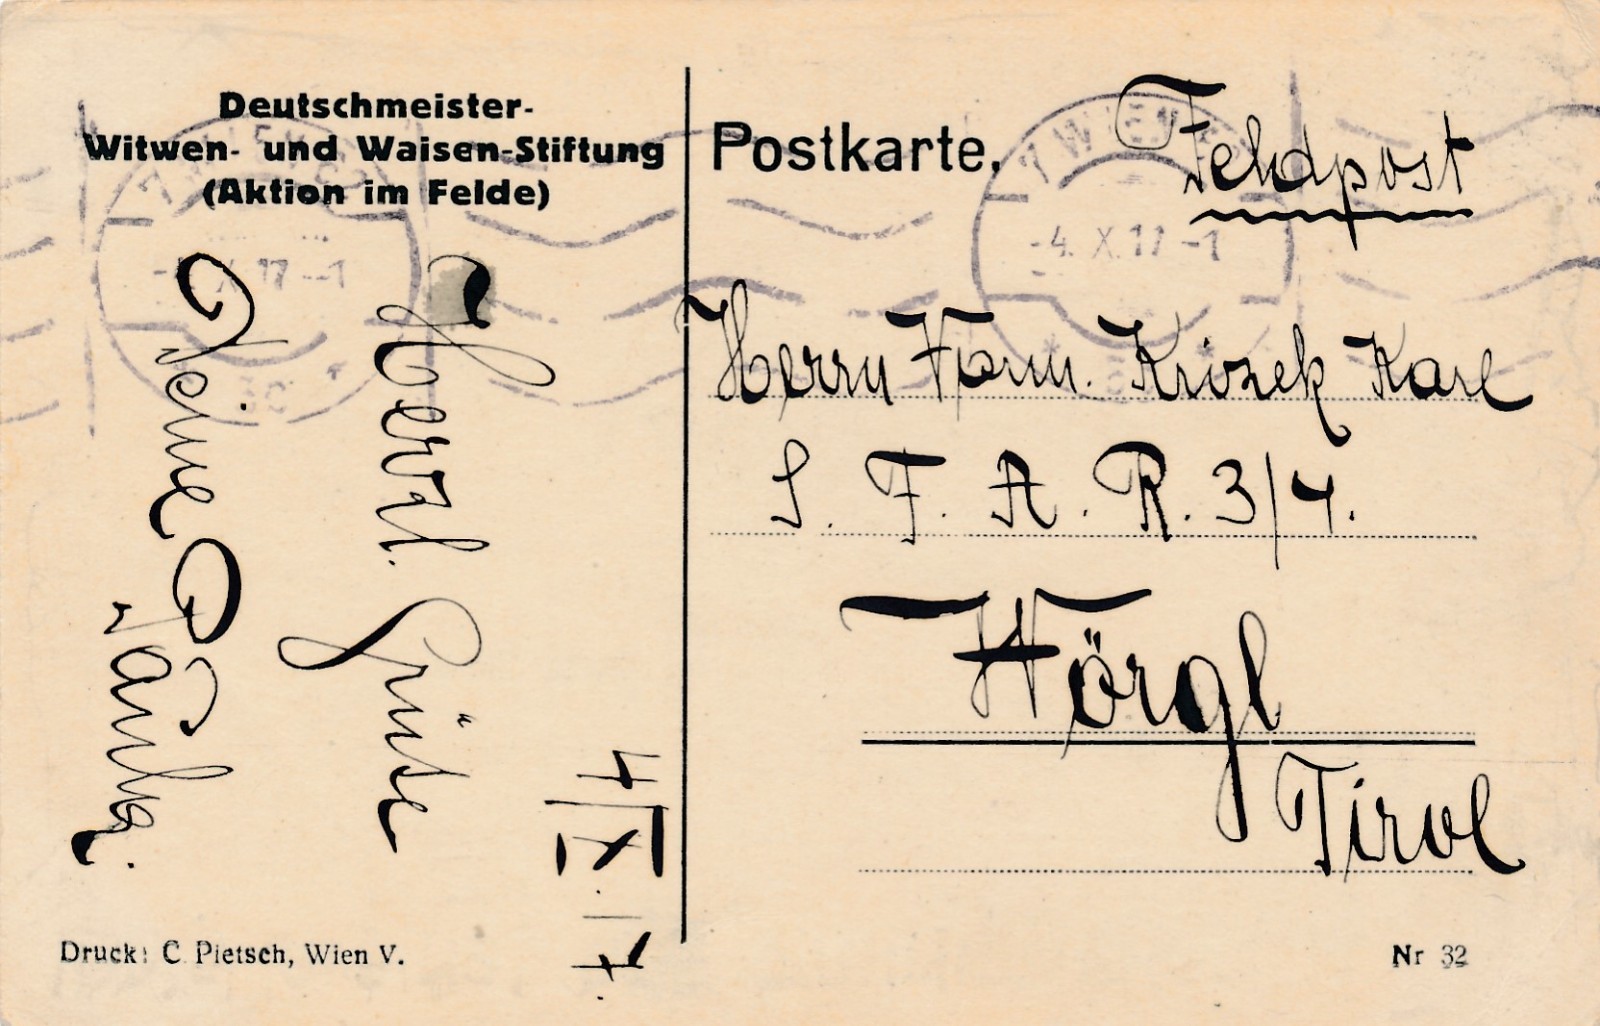 Deutschmeister-
Witwen- und Waisen-Stiftung
(Aktion im Felde)
Herzl. Grüße
Deine
4/X. 17.
Druck: C. Pietsch, Wien V.
Postkarte.
Feldpost
7 WIEN
-4. X. 17 -1
Herrn Kan. Krizek Karl
S. F. A. R. 3/4.
Wörgl
Tirol
Nr 32